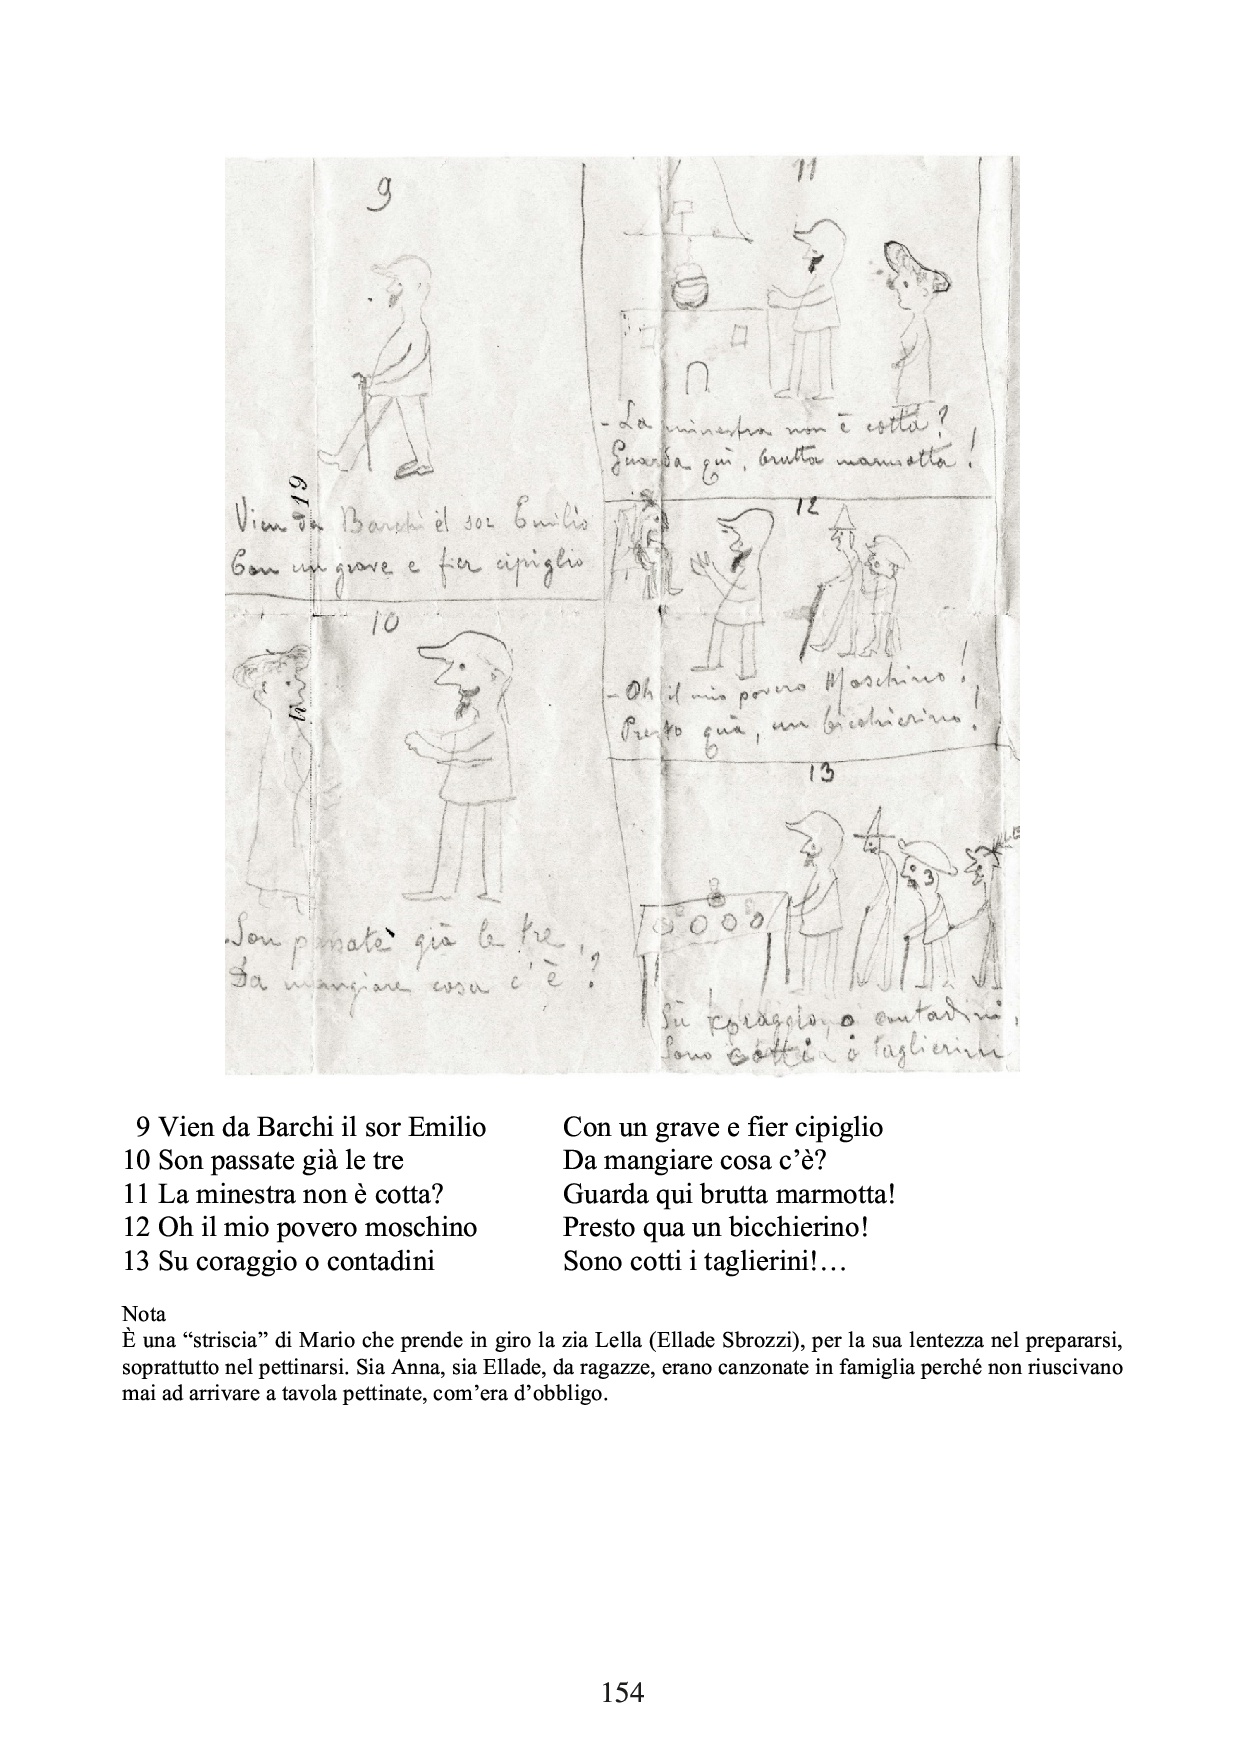 9
Vien da Barchi il sor Emilio
Con un grave e fier cipiglio
19
10
Son passate già le tre,
Da mangiare cosa c'è?
11
- La minestra non è cotta?
Guarda qui, brutta marmotta!
12
- Oh il mio povero Moschino!
Presto quà, un bicchierino!
13
Sù coraggio, o contadini,
Sono cotti i taglierini
9 Vien da Barchi il sor Emilio Con un grave e fier cipiglio
10 Son passate già le tre Da mangiare cosa c’è?
11 La minestra non è cotta? Guarda qui brutta marmotta!
12 Oh il mio povero moschino Presto qua un bicchierino!
13 Su coraggio o contadini Sono cotti i taglierini!…
Nota
È una “striscia” di Mario che prende in giro la zia Lella (Ellade Sbrozzi), per la sua lentezza nel prepararsi,
soprattutto nel pettinarsi. Sia Anna, sia Ellade, da ragazze, erano canzonate in famiglia perché non riuscivano
mai ad arrivare a tavola pettinate, com’era d’obbligo.
154